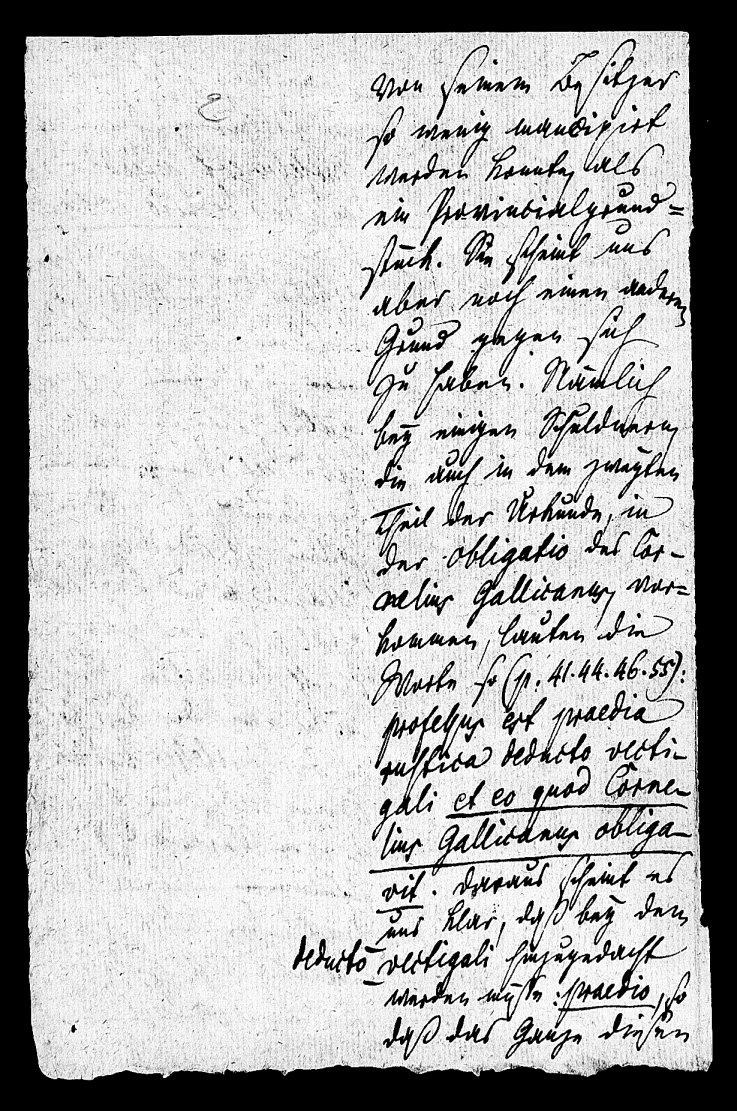 von seinem Besitzer
so wenig mancipirt
werden konnte, als
ein Provincialgrund=
stück. Sie scheint uns
aber noch einen anderen
Grund gegen sich
zu haben. Nämlich
bey einigen Schuldnern,
die auch in dem zweyten
Theil der Urkunde, in
der obligatio des Cor-
nelius Gallicanus, vor=
kommen, lauten die
Worte so (p. 41. 44. 46. 55):
professus est praedia
rustica deducto vecti-
gali et eo quod Corne-
lius Gallicanus obliga-
vit. Daraus scheint es
uns klar, daß bey dem
deducto vectigali hinzugedacht
werden müsse: praedio, so
daß das Ganze diesen